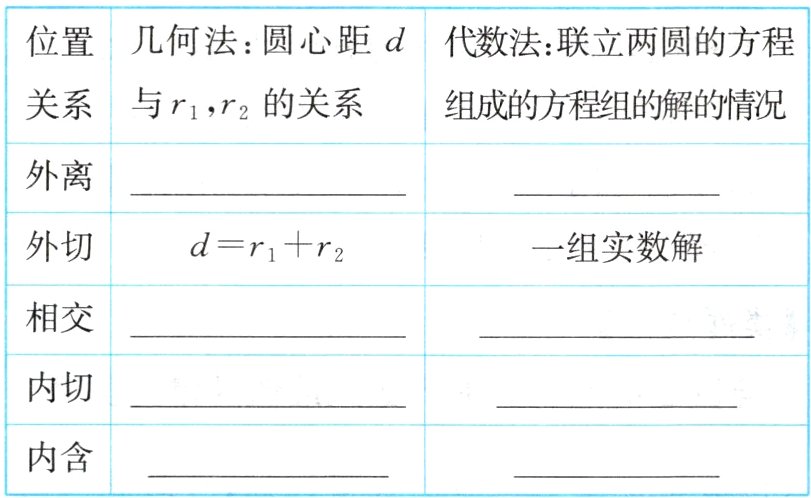 位置
关系
几何法:圆心距 d
与r₁,r₂ 的关系
代数法:联立两圆的方程
组成的方程组的解的情况
外离
外切
d=r₁+r₂
一组实数解
相交
内切
内含